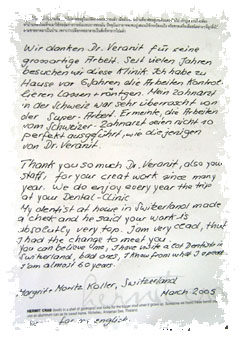 Wir danken Dr. Veranit für seine
grossartige Arbeit. Seit vielen Jahren
besuchen wir diese Klinik. Ich habe zu
Hause vor 6 Jahren die Arbeiten Kontrol-
lieren lassen. Mein Zahnarzt
in der Schweiz war sehr überrascht von
der Super-Arbeit. Er meinte, die Arbeiten
vom Schweizer-Zahnarzt seien nicht so
perfekt ausgeführt, wie diejenigen
von Dr. Veranit.
Thank you so much Dr. Veranit, also your
staff, for your creat work since many
year. We do enjoy every year the trip
at your Dental-Clinic.
My dentist at home in Switzerland made
a check and he said your work is
absolutly very top. I am very glad, that
I had the change to meet you.
You can believe me, I have with a lot Dentists in
Switzerland, bad ones, I know from what I speak
I am almost 60 years.
Margrit + Moritz Koller, Switzerland
March 2005
HERMIT CRAB
for its english